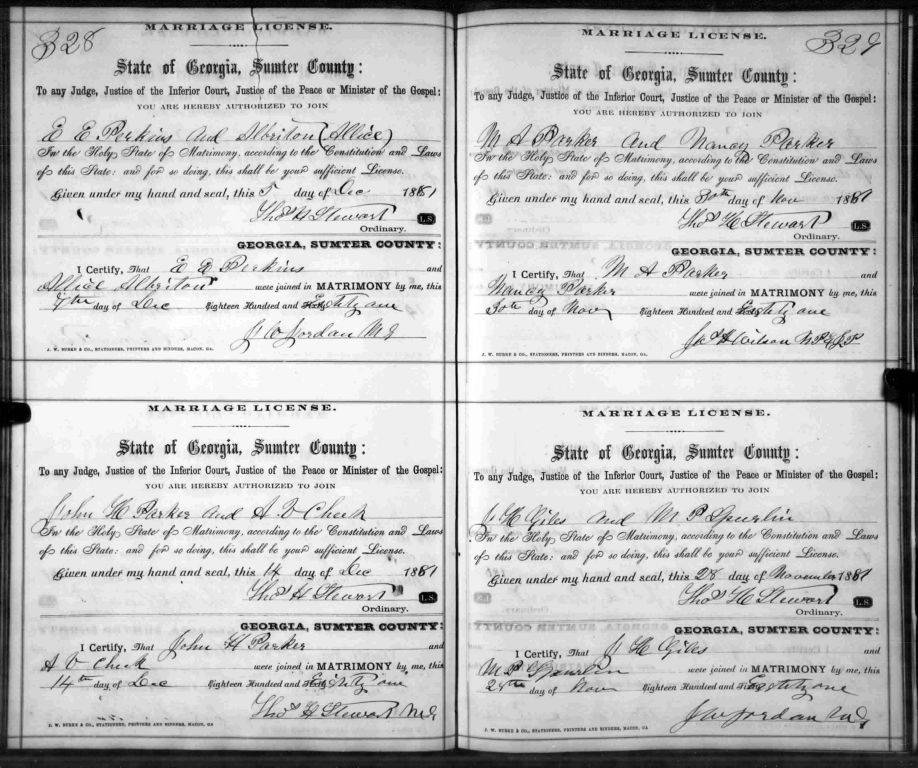 328
MARRIAGE LICENSE.
State of Georgia, Sumter County:
To any Judge, Justice of the Inferior Court, Justice of the Peace or Minister of the Gospel:
YOU ARE HEREBY AUTHORIZED TO JOIN
E E Perkins and Albriton (Allice)
In the Holy State of Matrimony, according to the Constitution and Laws
of this State: and for so doing, this shall be your sufficient License.
Given under my hand and seal, this 5 day of Dec 1881
Thos H Stewart L.S.
Ordinary.
GEORGIA, SUMTER COUNTY:
I Certify, That E E Perkins and
Allice Albriton were joined in MATRIMONY by me, this
day of Dec Eighteen Hundred and Eighty one
J W Jordan M G
J. W. BURKE & CO., STATIONERS, PRINTERS AND BINDERS, MACON, GA.
MARRIAGE LICENSE.
State of Georgia, Sumter County:
To any Judge, Justice of the Inferior Court, Justice of the Peace or Minister of the Gospel:
YOU ARE HEREBY AUTHORIZED TO JOIN
John H Parker and A V Cheek
In the Holy State of Matrimony, according to the Constitution and Laws
of this State: and for so doing, this shall be your sufficient License.
Given under my hand and seal, this 14 day of Dec 1881
Thos H Stewart L.S.
Ordinary.
GEORGIA, SUMTER COUNTY:
I Certify, That John H Parker and
A V Cheek were joined in MATRIMONY by me, this
14th day of Dec Eighteen Hundred and Eighty one
Thos H Stewart M G
J. W. BURKE & CO., STATIONERS, PRINTERS AND BINDERS, MACON, GA
329
MARRIAGE LICENSE.
State of Georgia, Sumter County:
To any Judge, Justice of the Inferior Court, Justice of the Peace or Minister of the Gospel:
YOU ARE HEREBY AUTHORIZED TO JOIN
M A Parker and Nancy Parker
In the Holy State of Matrimony, according to the Constitution and Laws
of this State: and for so doing, this shall be your sufficient License.
Given under my hand and seal, this 30th day of Nov 1881
Thos H Stewart L.S.
Ordinary.
GEORGIA, SUMTER COUNTY:
I Certify, That M A Parker and
Nancy Parker were joined in MATRIMONY by me, this
30th day of Nov Eighteen Hundred and Eighty one
Jas H Wilson N P & J P
J. W. BURKE & CO., STATIONERS, PRINTERS AND BINDERS, MACON, GA.
MARRIAGE LICENSE.
State of Georgia, Sumter County:
To any Judge, Justice of the Inferior Court, Justice of the Peace or Minister of the Gospel:
YOU ARE HEREBY AUTHORIZED TO JOIN
J H Giles and M P Spurlin
In the Holy State of Matrimony, according to the Constitution and Laws
of this State: and for so doing, this shall be your sufficient License.
Given under my hand and seal, this 28 day of November 1881
Thos H Stewart L.S.
Ordinary.
GEORGIA, SUMTER COUNTY:
I Certify, That J H Giles and
M P Spurlin were joined in MATRIMONY by me, this
28th day of Nov Eighteen Hundred and Eighty one
J W Jordan M G
J. W. BURKE & CO., STATIONERS, PRINTERS AND BINDERS, MACON, GA